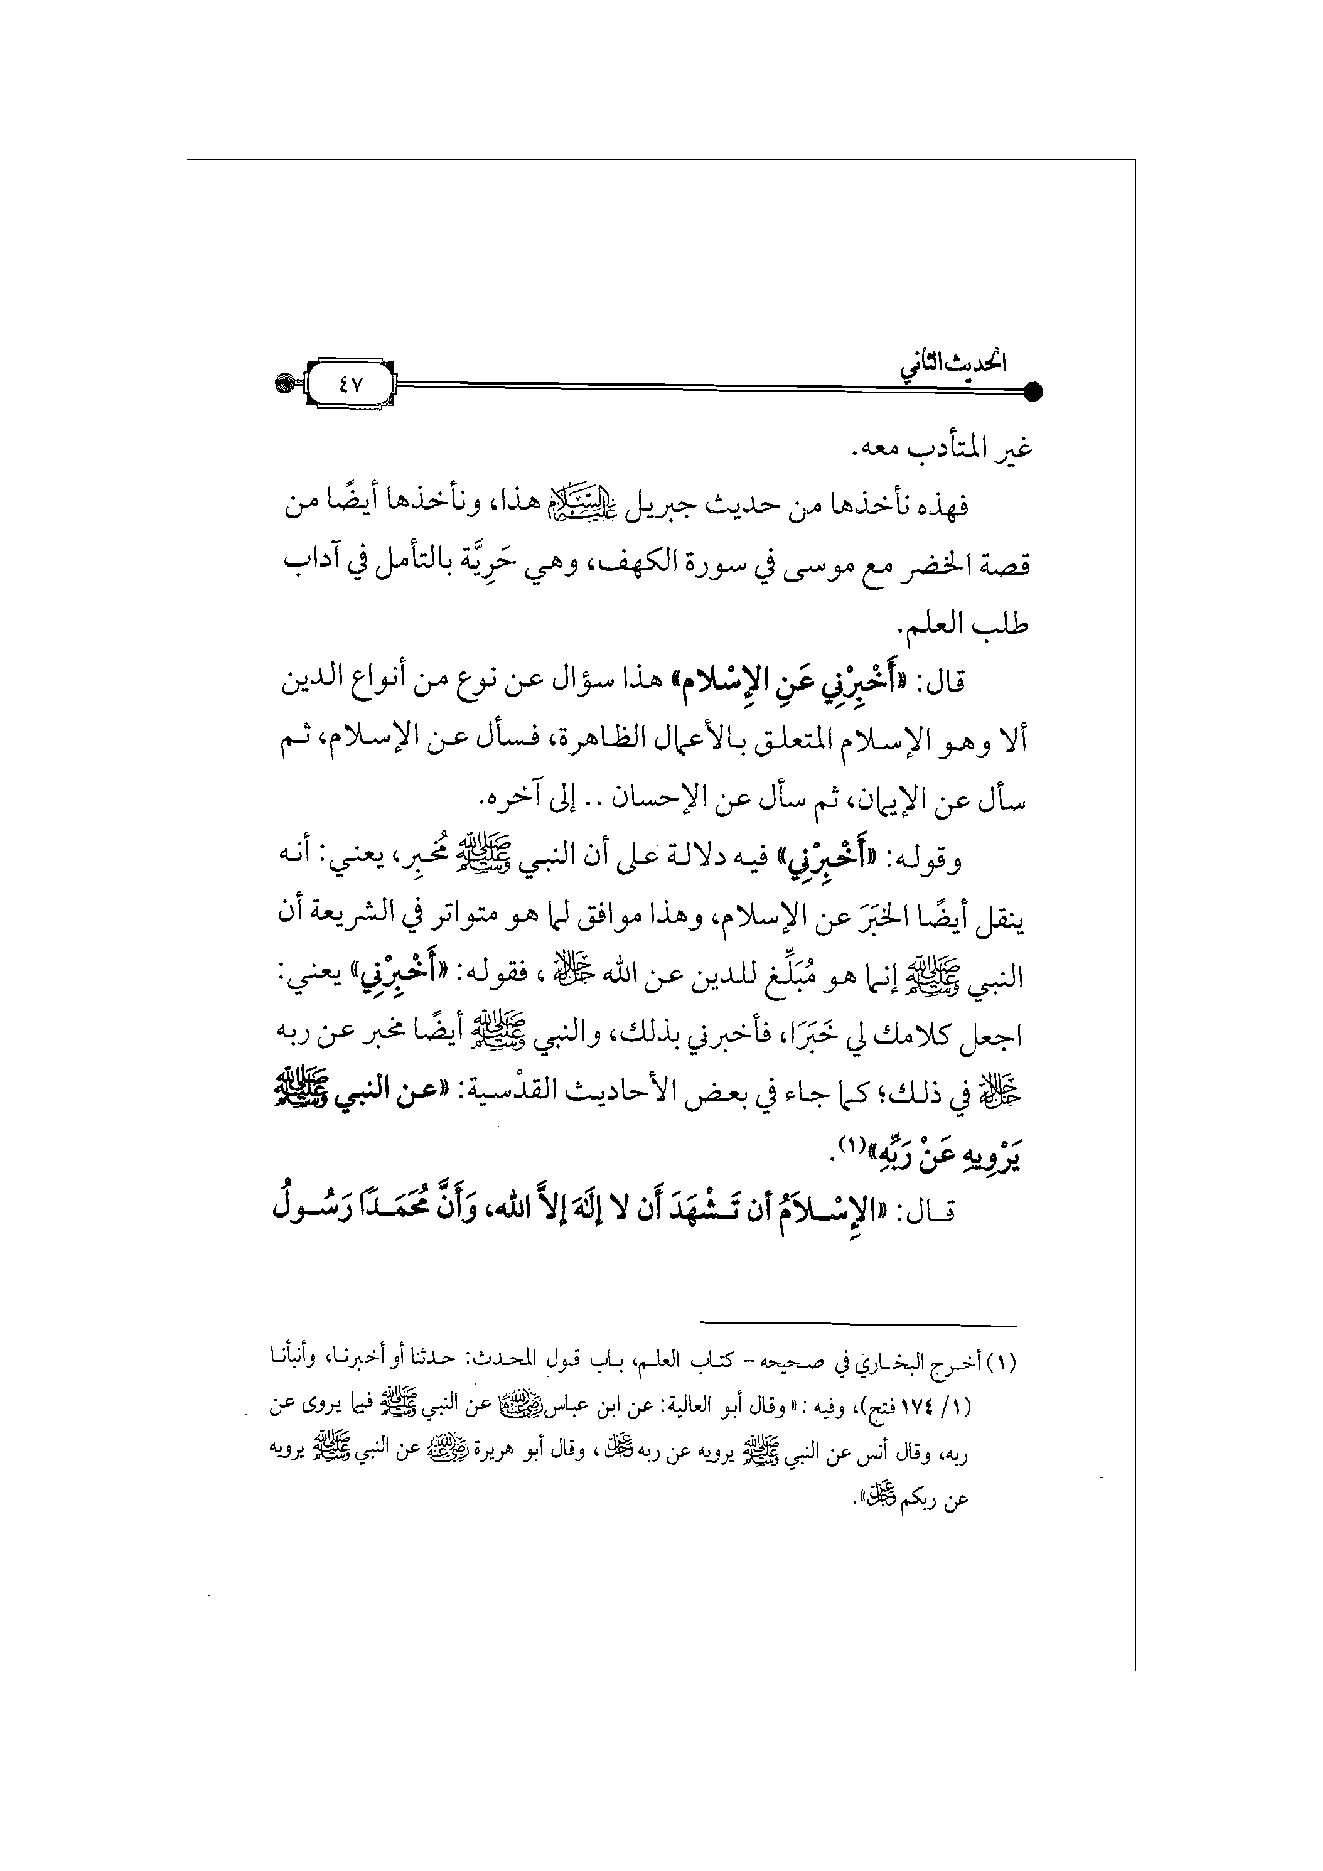 الحديث الثاني
٤٧
غير المتأدب معه.
فهذه نأخذها من حديث جبريل عليه السلام هذا، ونأخذها أيضًا من
قصة الخضر مع موسى في سورة الكهف، وهي حَرِيَّة بالتأمل في آداب
طلب العلم.
قال: «أَخْبِرْنِي عَنِ الإِسْلام» هذا سؤال عن نوع من أنواع الدين
ألا وهو الإسلام المتعلق بالأعمال الظاهرة، فسأل عن الإسلام، ثم
سأل عن الإيمان، ثم سأل عن الإحسان .. إلى آخره.
وقوله: «أَخْبِرْنِي» فيه دلالة على أن النبي ﷺ مُخبِر، يعني: أنه
ينقل أيضًا الخَبَرَ عن الإسلام، وهذا موافق لما هو متواتر في الشريعة أن
النبي ﷺ إنما هو مُبَلِّغ للدين عن الله ﷻ، فقوله: «أَخْبِرْنِي» يعني:
اجعل كلامك لي خَبَرًا، فأخبرني بذلك، والنبي ﷺ أيضًا مخبر عن ربه
ﷻ في ذلك؛ كما جاء في بعض الأحاديث القدْسية: «عن النبي ﷺ
يَرْوِيهِ عَنْ رَبِّهِ»(١).
قال: «الإِسْلاَمُ أن تَشْهَدَ أَن لا إِلَهَ إِلاَّ الله، وَأَنَّ مُحَمَدًا رَسُولُ
(١) أخرج البخاري في صحيحه - كتاب العلم، باب قول المحدث: حدثنا أو أخبرنا، وأنبأنا
(١/ ١٧٤ فتح)، وفيه: «وقال أبو العالية: عن ابن عباس رضي الله عنهما عن النبي ﷺ فيما يروى عن
ربه، وقال أنس عن النبي ﷺ يرويه عن ربه عز وجل، وقال أبو هريرة رضي الله عنه عن النبي ﷺ يرويه
عن ربكم عز وجل».